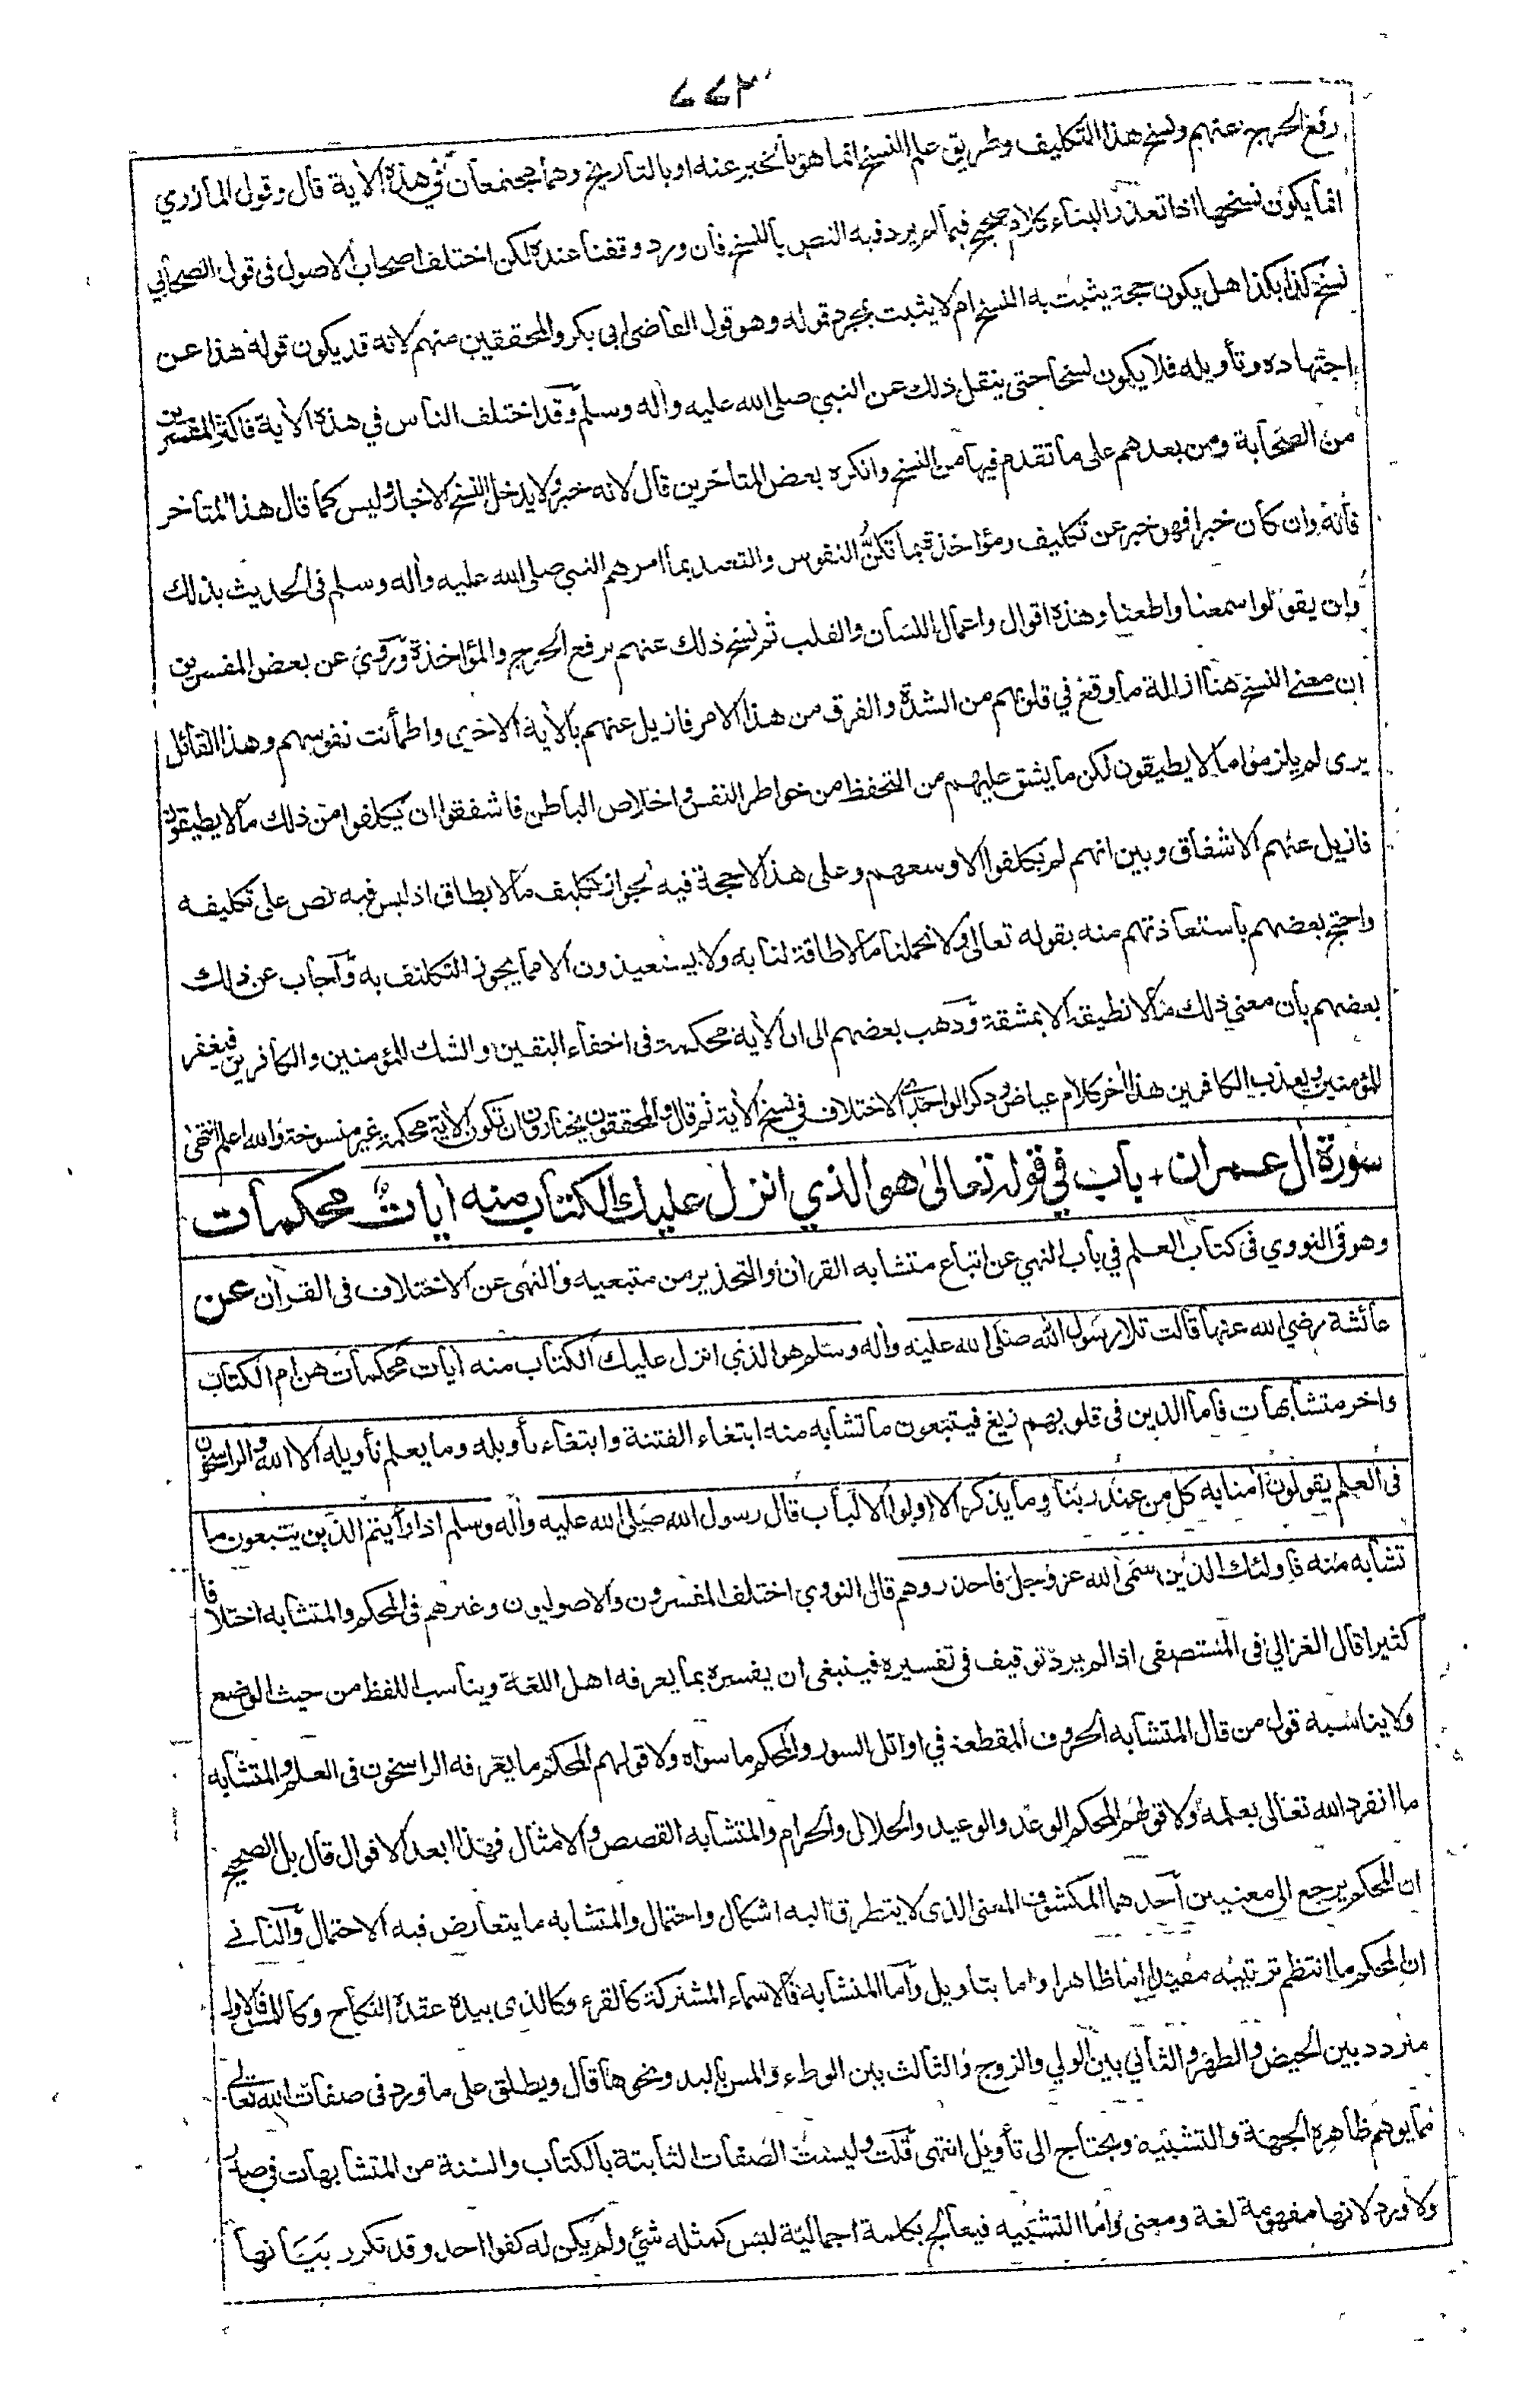 ٧٧٣
رفع الحرج عنهم ونسخ هذا التكليف وطريق علم النسخ انما هو بالخبر عنه او بالتاريخ وهما مجتمعان في هذه الأية قال وقول المازري
انما يكون نسخها اذا تعذر البناء كلام صحيح فيما لم يرد فيه النص بالنسخ فان ورد وقفنا عنده لكن اختلف اصحاب الاصول في قول الصحابي
نسخ كذا بكذا هل يكون حجة يثبت به النسخ ام لا يثبت بمجرد قوله وهو قول القاضي ابي بكر والمحققين منهم لانه قد يكون قوله هذا عن
اجتهاده وتأويله فلا يكون نسخا حتى ينقل ذلك عن النبي صلى الله عليه وأله وسلم وقد اختلف الناس في هذه الأية فاكثر المفسرين
من الصحابة ومن بعدهم على ما تقدم فيها من النسخ وانكره بعض المتاخرين قال لانه خبر ولا يدخل النسخ الاخبار وليس كما قال هذا المتاخر
فانه وان كان خبرا فهو خبر عن تكليف ومؤاخذة بما تكن النفوس والتعبد بما امرهم النبي صلى الله عليه وأله وسلم في الحديث بذلك
وان يقولوا سمعنا واطعنا وهذه اقوال واعمال اللسان والقلب ثم نسخ ذلك عنهم برفع الحرج والمؤاخذة وروي عن بعض المفسرين
ان معنى النسخ هنا ازالة ما وقع في قلوبهم من الشدة والفرق من هذا الامر فازيل عنهم بالأية الاخرى واطمأنت نفوسهم وهذا القائل
يرى لم يلزموا ما لا يطيقون لكن ما يشق عليهم من التحفظ من خواطر النفس واخلاص الباطن فاشفقوا ان يكلفوا من ذلك ما لا يطيقون
فازيل عنهم الاشفاق وبين انهم لم يكلفوا الا وسعهم وعلى هذا لا حجة فيه لجواز تكليف ما لا يطاق اذ ليس فيه نص على تكليفه
واحتج بعضهم باستعاذتهم منه بقوله تعالى ولا تحملنا ما لا طاقة لنا به ولا يستعيذون الا مما يجوز التكليف به وأجاب عن ذلك
بعضهم بأن معنى ذلك ما لا نطيقه الا بمشقة وذهب بعضهم الى ان الأية محكمة في اخفاء اليقين والشك للمؤمنين والكافرين فيغفر
للمؤمنين ويعذب الكافرين هذا أخر كلام عياض وذكر الواحدي الاختلاف في نسخ الأية ثم قال والمحققون يختارون ان تكون الأية محكمة غير منسوخة والله اعلم انتهى
سورة أل عمران + باب في قوله تعالى هو الذي انزل عليك الكتاب منه أيات محكمات
وهو في النووي في كتاب العلم في باب النهي عن اتباع متشابه القرأن والتحذير من متبعيه والنهي عن الاختلاف في القرأن عن
عائشة رضي الله عنها قالت تلا رسول الله صلى الله عليه وأله وسلم هو الذي انزل عليك الكتاب منه أيات محكمات هن ام الكتاب
واخر متشابهات فاما الذين في قلوبهم زيغ فيتبعون ما تشابه منه ابتغاء الفتنة وابتغاء تأويله وما يعلم تأويله الا الله والراسخون
في العلم يقولون أمنا به كل من عند ربنا وما يذكر الا اولوا الالباب قال رسول الله صلى الله عليه وأله وسلم اذا رأيتم الذين يتبعون ما
تشابه منه فاولئك الذين سمى الله عز وجل فاحذروهم قال النووي اختلف المفسرون والاصوليون وغيرهم في المحكم والمتشابه اختلافا
كثيرا قال الغزالي في المستصفى اذا لم يرد توقيف في تفسيره فينبغي ان يفسره بما يعرفه اهل اللغة ويناسب اللفظ من حيث الوضع
ولا يناسبه قول من قال المتشابه الحروف المقطعة في اوائل السور والمحكم ما سواه ولا قولهم المحكم ما يعرفه الراسخون في العلم والمتشابه
ما انفرد الله تعالى بعلمه ولا قولهم المحكم الوعد والوعيد والحلال والحرام والمتشابه القصص والامثال فهذا ابعد الاقوال قال بل الصحيح
ان المحكم يرجع الى معنيين أحدهما المكشوف المعنى الذي لا يتطرق اليه اشكال واحتمال والمتشابه ما يتعارض فيه الاحتمال والثاني
ان المحكم ما انتظم ترتيبه مفيدا اما ظاهرا واما بتاويل وأما المتشابه فالاسماء المشتركة كالقرء وكالذي بيده عقدة النكاح وكاللمس فالاول
متردد بين الحيض والطهر والثاني بين الولي والزوج والثالث بين الوطء والمس باليد ونحوها قال ويطلق على ما ورد في صفات الله تعالى
مما يوهم ظاهره الجهة والتشبيه ويحتاج الى تأويل انتهى قلت وليست الصفات الثابتة بالكتاب والسنة من المتشابهات في صدر
ولا ورد لانها مفهومة لغة ومعنى وأما التشبيه فيعالج بكلمة اجمالية ليس كمثله شئ ولم يكن له كفوا احد وقد تكرر بيانها